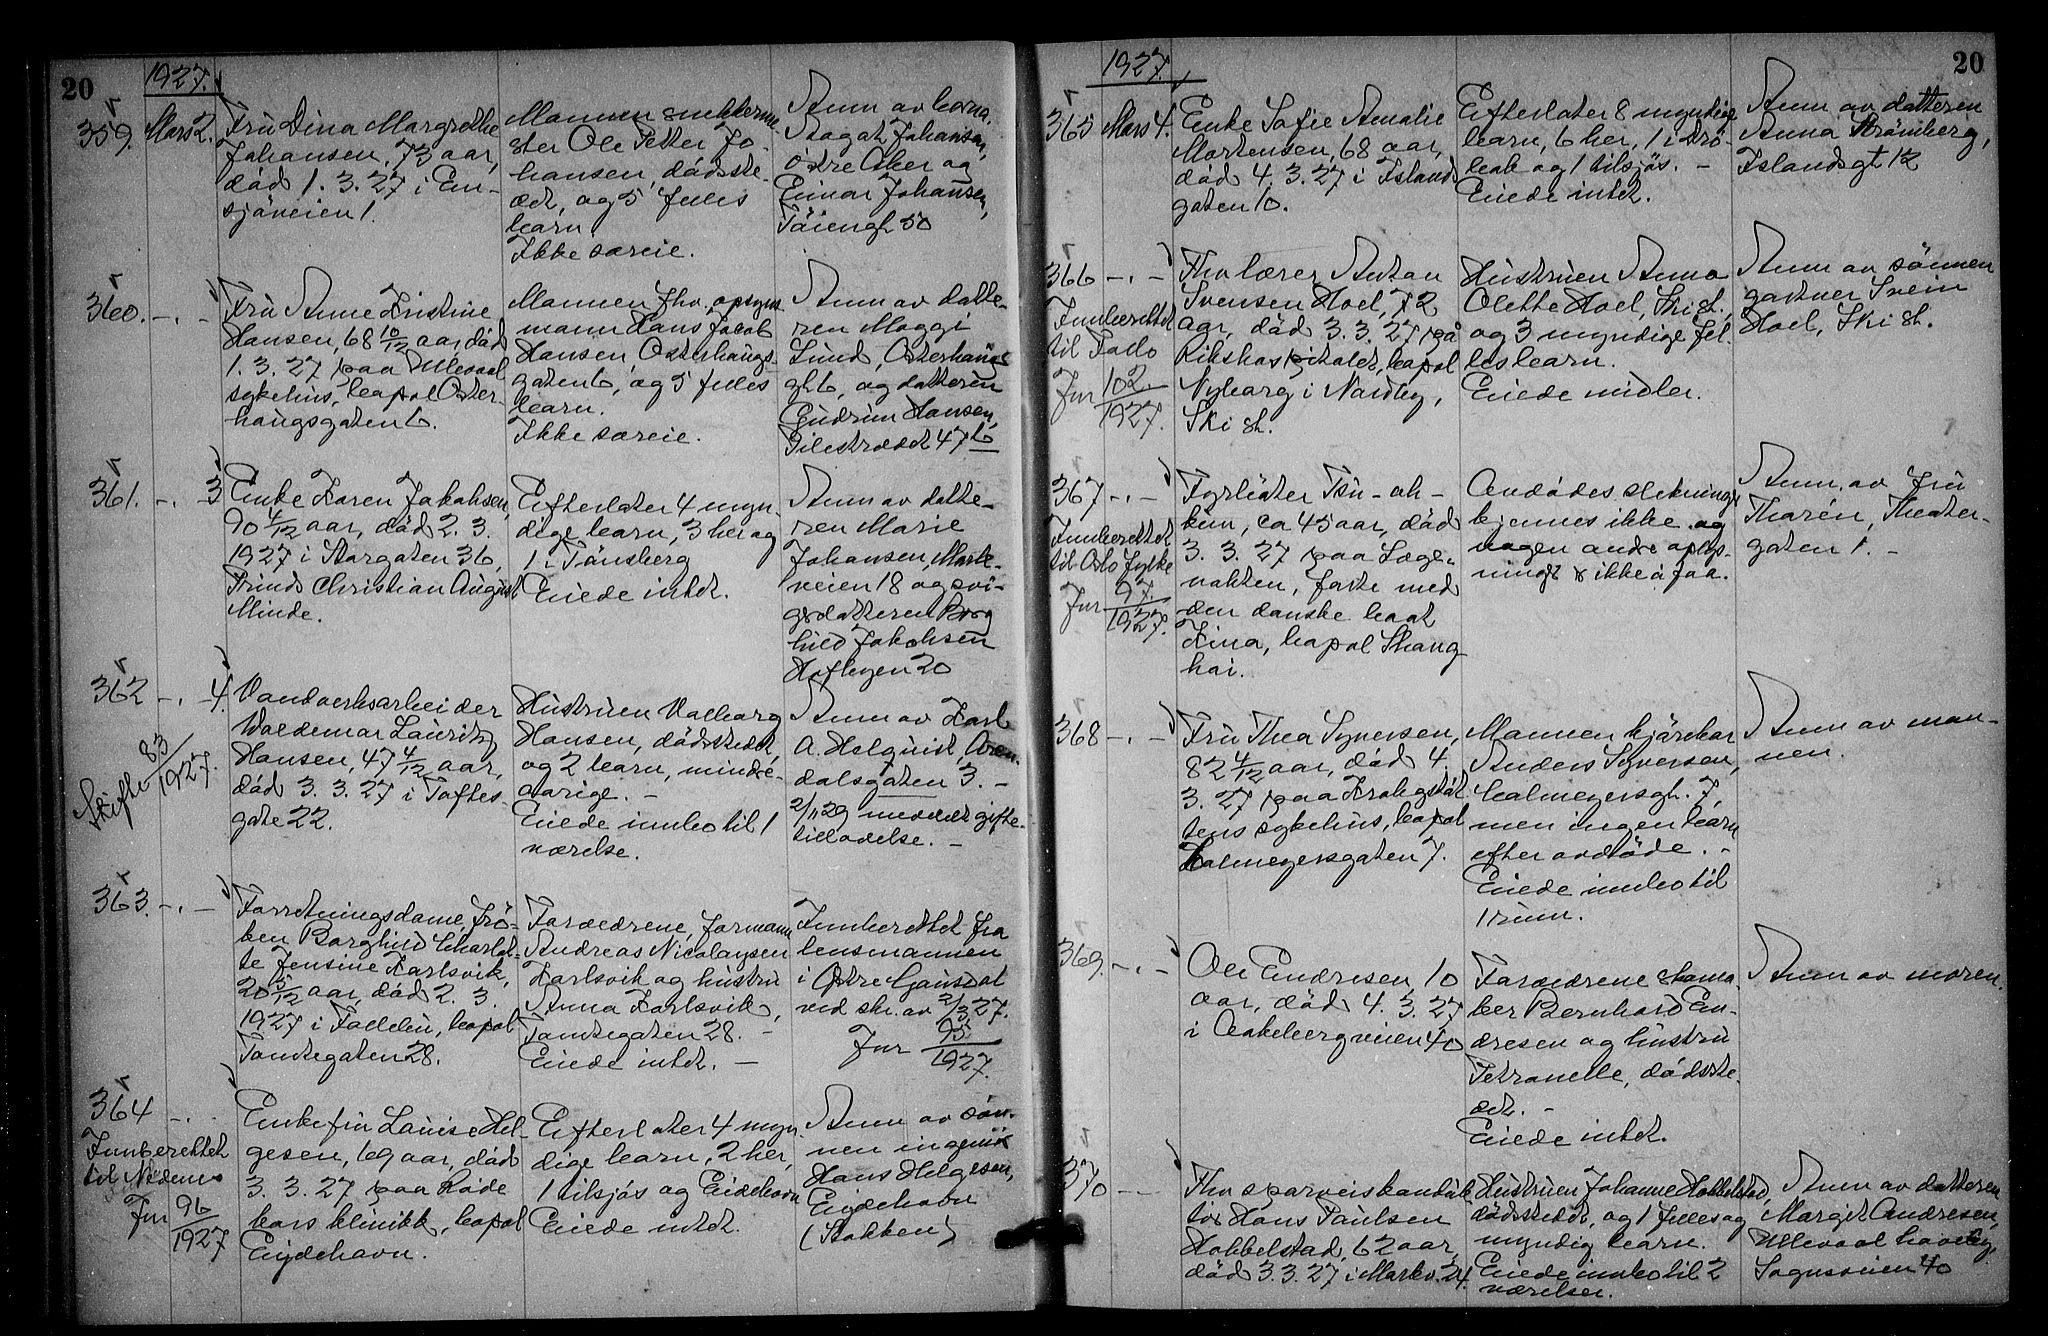 20
1927.
359. Mars 2.
Fru Dina Margrethe
Johansen, 73 aar,
död 1. 3. 27 i En-
sjöveien 1.
Mannen snekkerme-
ster Ole Petter Jo-
hansen, dödsste-
det, og 5 felles
barn
Ikke særeie.
Anm av barna
Aagot Johansen,
östre Aker og
Einar Johansen,
Töiengt 50
360. -.-
Fru Anne Kristine
Hansen, 68 10/12 aar, död
1. 3. 27 paa Ullevaal
sykehus, bopel Oster-
haugsgaten 6.
Mannen fhv. opsyns-
mann Hans Jacob
Hansen Osterhaugs-
gaten 6, og 5 felles
barn.
Ikke særeie.
Anm av datte-
ren Maggi
Lund, Osterhaugs
gt 6, og datteren
Gudrun Hansen,
Pilestrædet 47 b
361. -.- 3
Enke Karen Jakobsen,
90 4/12 aar, död 2. 3.
1927 i Storgaten 36,
Prinds Christian August
Minde.
Efterlater 4 myn-
dige barn, 3 her og
1 i Tönsberg
Eiede intet.
Anm av datte-
ren Marie
Johansen, Mark-
veien 18 og svi-
gerdatteren Borg
hild Jakobsen
20
362 -.- 4.
Skifte 83/1927.
Vandverksarbeider
Waldemar Lauritz
Hansen, 47 4/12 aar,
död 3. 3. 27 i Toftes-
gate 22.
Hustruen Valborg
Hansen, dödsstedet,
og 2 barn, mindre-
aarige. -
Eiede innbo til 1
værelse.
Anm av Karl
A. Holquist, Aren-
dalsgaten 3. -
2/11 29 meddelt gifte-
tilladelse. -
363. -.-
Forretningsdame, frö-
ken Borghild Charlot-
te Jensine Karlsvik,
20 5/12 aar, död 2. 3.
1927 i Follebu, bopel
Tomtegaten 28.
Foræedrene, formann
Andreas Nicolaysen
Karlsvik og hustru
Anna Karlsvik,
Tomtegaten 28. -
Eiede intet. -
Innberettet fra
lensmannen
i Östre Gausdal
ved skr. av 2/3 27.
Jnr 95/1927.
364 -.-
Innberettet
til Nedenes
Jnr 96/1927
Enkefru Louise Hel-
gesen, 69 aar, död
3. 3. 27 paa Röde
kors klinikk, bopel
Eydehavn.
Efterlater 4 myn-
dige barn, 2 her,
1 tilsjös og Eidehavn
Eiede intet.
Anm av sön-
nen ingeniör
Hans Helgesen,
Eydehavn
(Stokken)
20
1927.
365 Mars 4.
Enke Sofie Amalie
Mortensen, 68 aar,
död 4. 3. 27 i Island
gaten 10.
Efterlater 8 myndige
barn, 6 her, 1 i Drö-
bak og 1 tilsjös. -
Eiede intet.
Anm av datteren
Anna Strömberg,
Islandsgt 12
366 -.-
Innberettet
til Follo
Jnr 102./1927.
Fhv lærer Anton
Svensen Hoel, 72
aar, död 3. 3. 27 på
Rikshospitalet, bopel
Nyborg i Nordby,
Ski st.
Hustruen Anna
Olette Hoel, Ski st.,
og 3 myndige fel-
les barn.
Eiede midler.
Anm av sönnen
gartner Svein
Hoel, Ski st.
367 -.-
Innberettet
til Oslo fylke
Jnr 97./1927.
Fyrböter Tsu-ah-
kun, ca 45 aar, död
3. 3. 27 paa Læge-
vakten, farte med
den danske baat
Kina, bopel Shang
hai.
Avdödes slektninge
kjennes ikke og
nogen andre oplys-
ninger er ikke å faa.
Anm. av fru
Thorén, Theater-
gaten 1. -
368 -.-
Fru Thea Syversen,
82 4/12 aar, död 4.
3. 27 paa Krohgstöt-
tens sykehus, bopel
Calmeyersgaten 7.
Mannen kjörekar
Anders Syversen,
Calmeyersgt. 7,
men ingen barn
efter avdöde. -
Eiede innbo til
1 rum.
Anm av man-
nen.
369. -.-
Ole Endresen, 10
aar, död 4. 3. 27
i Aakebergveien 40
Foræedrene skoma-
ker Bernhard En-
dresen og hustru
Petronelle, dödsste-
det. -
Eiede intet.
Anm av moren.
370 -.-
Fhv sporveiskonduk
tör Hans Paulsen
Hobbelstad, 62 aar,
död 3. 3. 27 i Markv. 24.
Hustruen Johanne Hobbelstad,
dödsstedet, og 1 felles og
myndig barn.
Eiede innbo til 2
værelser.
Anm av datteren
Margit Andresen,
Ullevaal haveby,
Sognsveien 40